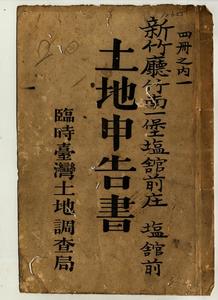 四冊之内一
新竹廳竹南一堡塩館前庄 塩館前
土地申告書
臨時臺灣土地調查局